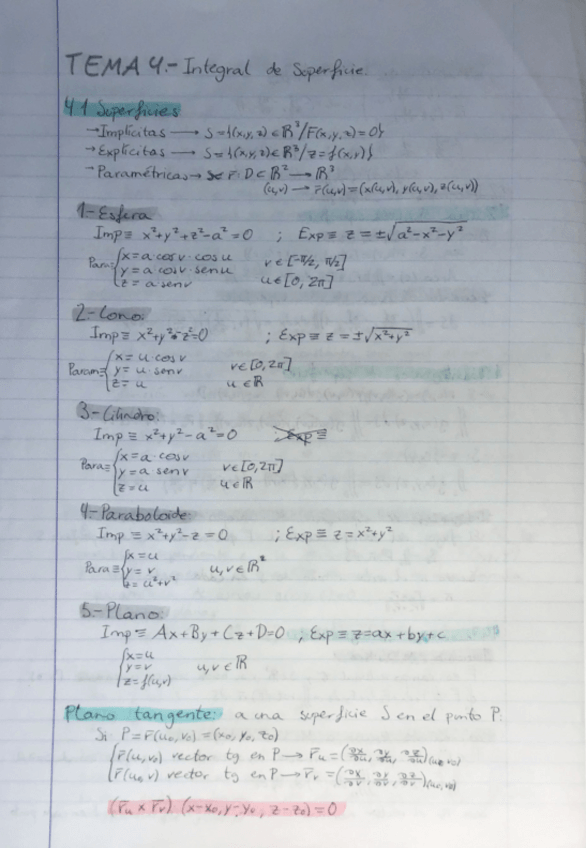 TEMA 4.- Integral de Superficie.
4.1 Superficies
→ Implícitas → S={(x,y,z)∈ℝ³/F(x,y,z)=0}
→ Explícitas → S={(x,y,z)∈ℝ³/z=f(x,y)}
→ Paramétricas → r̄: D⊂ℝ² → ℝ³
(u,v) → r̄(u,v)=(x(u,v), y(u,v), z(u,v))
1.-Esfera
Imp≡ x²+y²+z²-a²=0 ; Exp≡ z=±√(a²-x²-y²)
Para≡ {x=a cosv·cosu v∈[-π/2, π/2]
y=a cosv·senu
z=a senv u∈[0, 2π]
2-Cono:
Imp≡ x²+y²-z²=0 ; Exp≡ z=±√(x²+y²)
Param≡ {x=u·cosv v∈[0,2π]
y=u·senv
z=u u∈ℝ
3-Cilindro:
Imp≡ x²+y²-a²=0 Exp≡
Para≡ {x=a·cosv
y=a senv v∈[0,2π]
z=u u∈ℝ
4-Paraboloide:
Imp≡ x²+y²-z=0 ; Exp≡ z=x²+y²
Para≡ {x=u
y=v u,v∈ℝ²
z=u²+v²
5.-Plano:
Imp≡ Ax+By+Cz+D=0 ; Exp≡ z=ax+by+c
{x=u
y=v u,v∈ℝ
z=f(u,v)
Plano tangente: a una superficie S en el punto P:
Si P=r̄(u₀,v₀)=(x₀,y₀,z₀)
{r̄(u,v₀) vector tg en P → r̄u=(∂x/∂u, ∂y/∂u, ∂z/∂u)(u₀,v₀)
r̄(u₀,v) vector tg en P → r̄v=(∂x/∂v, ∂y/∂v, ∂z/∂v)(u₀,v₀)
(r̄u × r̄v) (x-x₀, y-y₀, z-z₀)=0